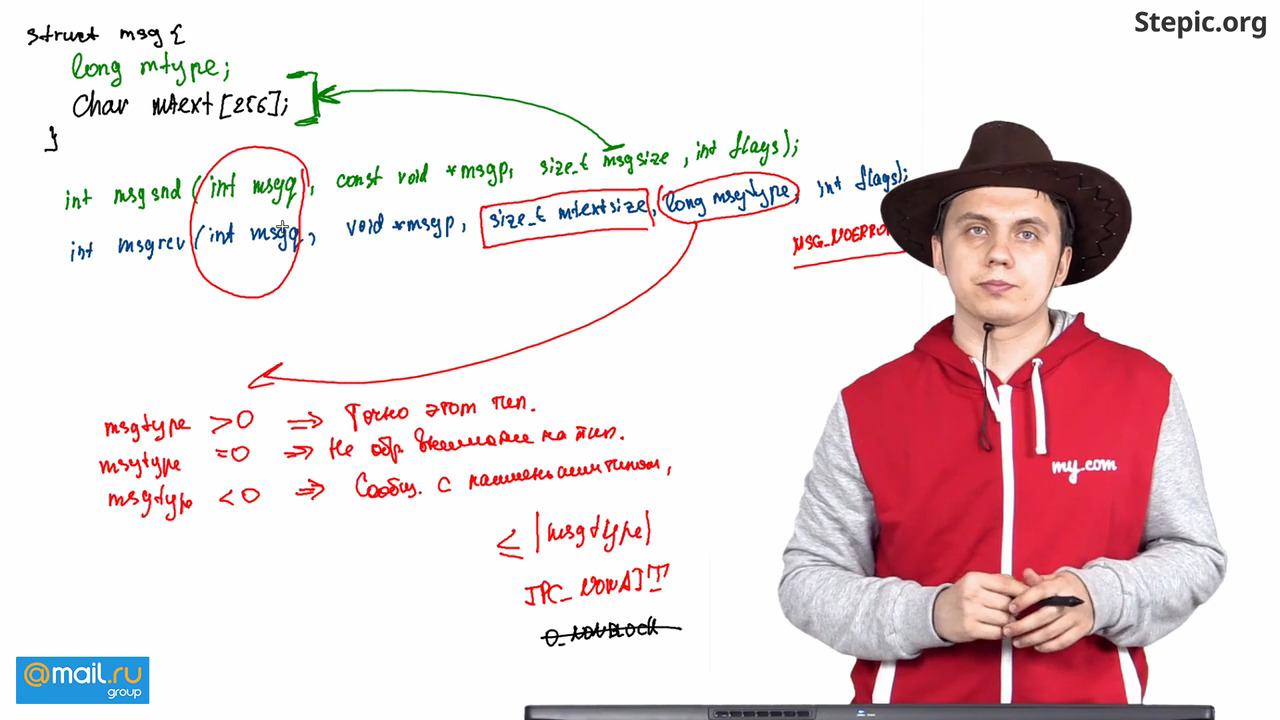 Stepic.org
struct msg {
long mtype;
char mtext [256];
}
int msgsnd (int msgq, const void *msgp, size_t msgsize, int flags);
int msgrcv (int msgq, void *msgp, size_t mtextsize, long msgtype, int flags);
MSG_NOERRO
msgtype > 0 ⇒ Точно этот тип.
msgtype = 0 ⇒ Не обр. внимание на тип.
msgtype < 0 ⇒ Сообщ. с наименьшим типом,
≤ |msgtype|
IPC_NOWAIT
O_NONBLOCK
my.com
@mail.ru
group